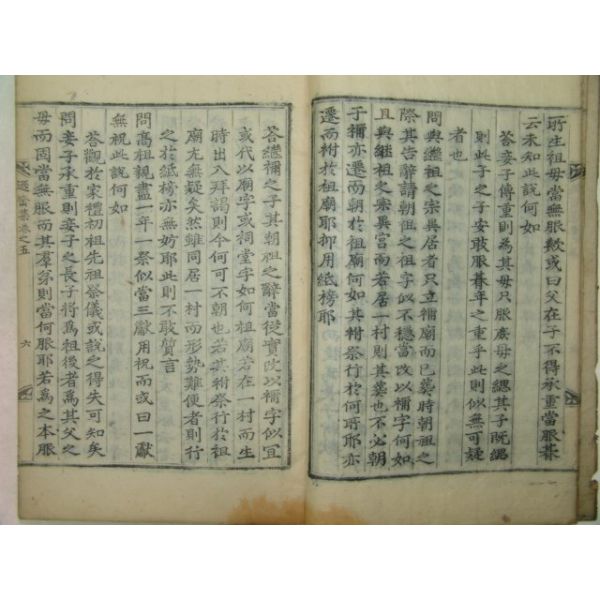 所生祖母當無服歟或曰父在子不得承重當服朞
云未知此說何如
答妾子傳重則為其母只服庶母之緦其子旣緦
則此子之子安敢服朞年之重乎此則似無可疑
者也
問與繼祖之宗異居者只立禰廟而已葬時朝祖之
際其告辭請朝祖之祖字似不穩當改以禰字何如
且與繼祖之宗異宮而若居一村則其葬也不必朝
于禰亦遷而朝於祖廟何如其祔祭行於何所耶亦
遷而祔於祖廟耶抑用紙榜耶
答繼禰之子其朝祖之辭當從實改以禰字似宜
或代以廟字或祠堂字何如祖廟若在一村而生
時出入拜謁則今何可不朝也若其祔祭行於祖
廟尤無疑矣然雖同居一村而形勢難便者則行
之於紙榜亦無妨耶此則不敢質言
問高祖親盡一年一祭似當三獻用祝而或曰一獻
無祝此說何如
答觀於家禮初祖先祖祭儀或說之得失可知矣
問妾子承重則妾子之長子將為祖後者為其父之
母而固當無服而其羣弟則當何服耶若為之本服
集卷之五
六